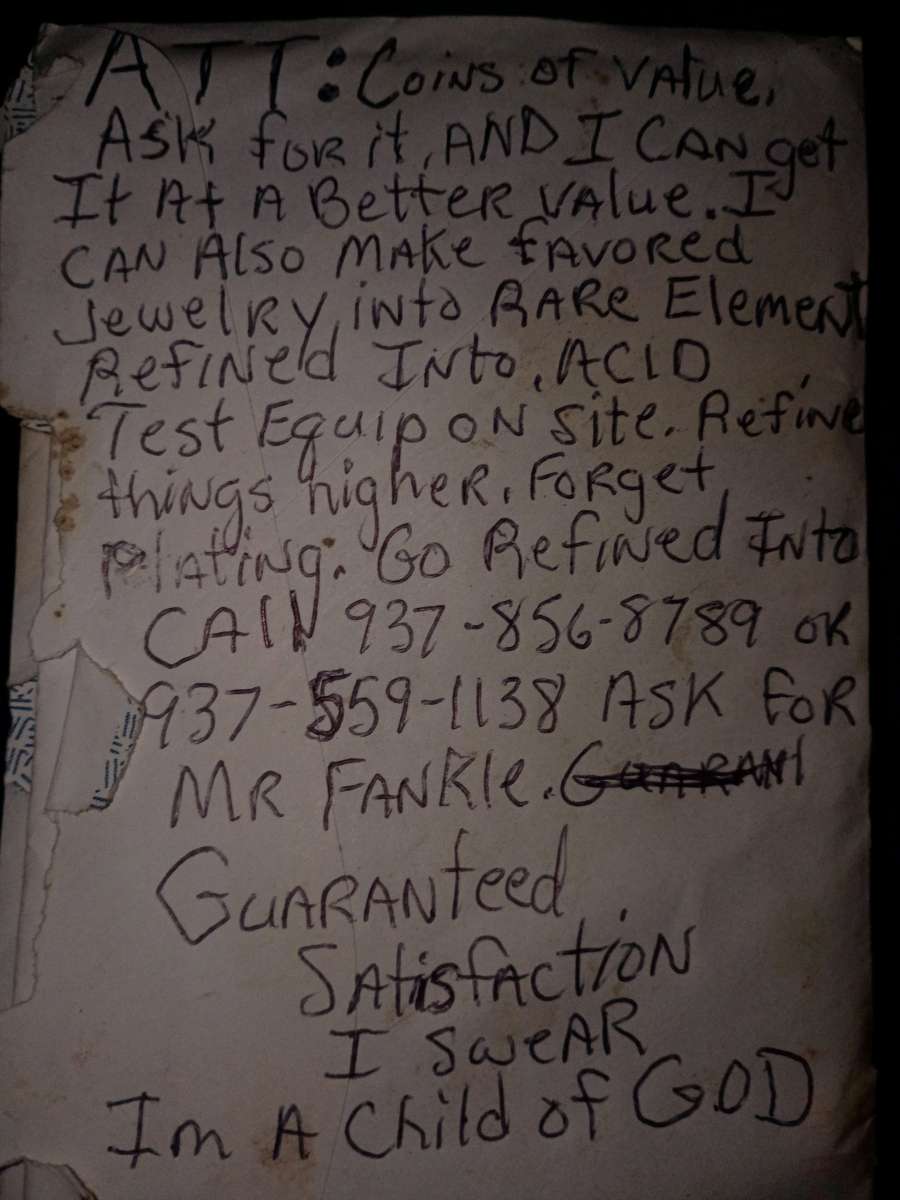 ATT: Coins of Value,
Ask for it, AND I CAN get
It At A Better Value. I
CAN Also Make favored
Jewelry, into Rare Element
Refined Into, ACID
Test Equip on site. Refine
things higher. Forget
plating. Go Refined Into
CAll 937-856-8789 or
937-559-1138 Ask for
Mr Fankle.
Guaranteed
Satisfaction
I swear
Im A Child of GOD